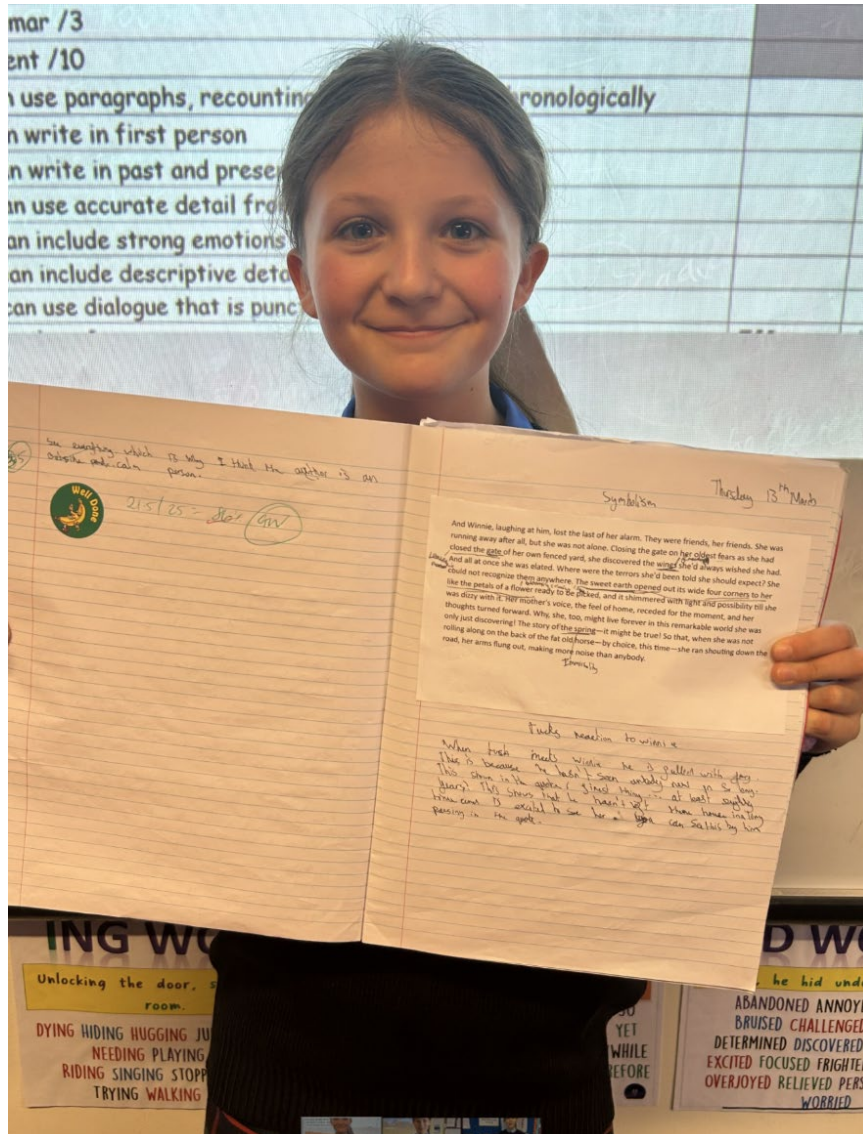 mar /3
ent /10
n use paragraphs, recounting
hronologically
n write in first person
n write in past and presen
an use accurate detail fro
an include strong emotions
an include descriptive deta
can use dialogue that is punc
See everything which is why I think the author is an
person.
Well Done
21.5/25 = 86%
Symbolism
Thursday 13th March
And Winnie, laughing at him, lost the last of her alarm. They were friends, her friends. She was
running away after all, but she was not alone. Closing the gate on her oldest fears as she had
closed the gate of her own fenced yard, she discovered the wings she'd always wished she had.
And all at once she was elated. Where were the terrors she'd been told she should expect? She
could not recognize them anywhere. The sweet earth opened out its wide four corners to her
like the petals of a flower ready to be picked, and it shimmered with light and possibility till she
was dizzy with it. Her mother's voice, the feel of home, receded for the moment, and her
thoughts turned forward. Why, she, too, might live forever in this remarkable world she was
only just discovering! The story of the spring—it might be true! So that, when she was not
rolling along on the back of the fat old horse—by choice, this time—she ran shouting down the
road, her arms flung out, making more noise than anybody.
Tucks reaction to winnie
When tuck meets winnie he is filled with
This is because he hasn't seen anybody new in so long.
This shown in the quote at last
years! This shows that he hasn't
time and is excited to see her
in the quote.
ING WO
D WO
Unlocking the door, s
room.
, he hid unde
DYING HIDING HUGGING JU
NEEDING PLAYING
RIDING SINGING STOPP
TRYING WALKING
SO
YET
WHILE
BEFORE
ABANDONED ANNOY
BRUISED CHALLENGED
DETERMINED DISCOVERED
EXCITED FOCUSED FRIGHTE
OVERJOYED RELIEVED PERS
WORRIED